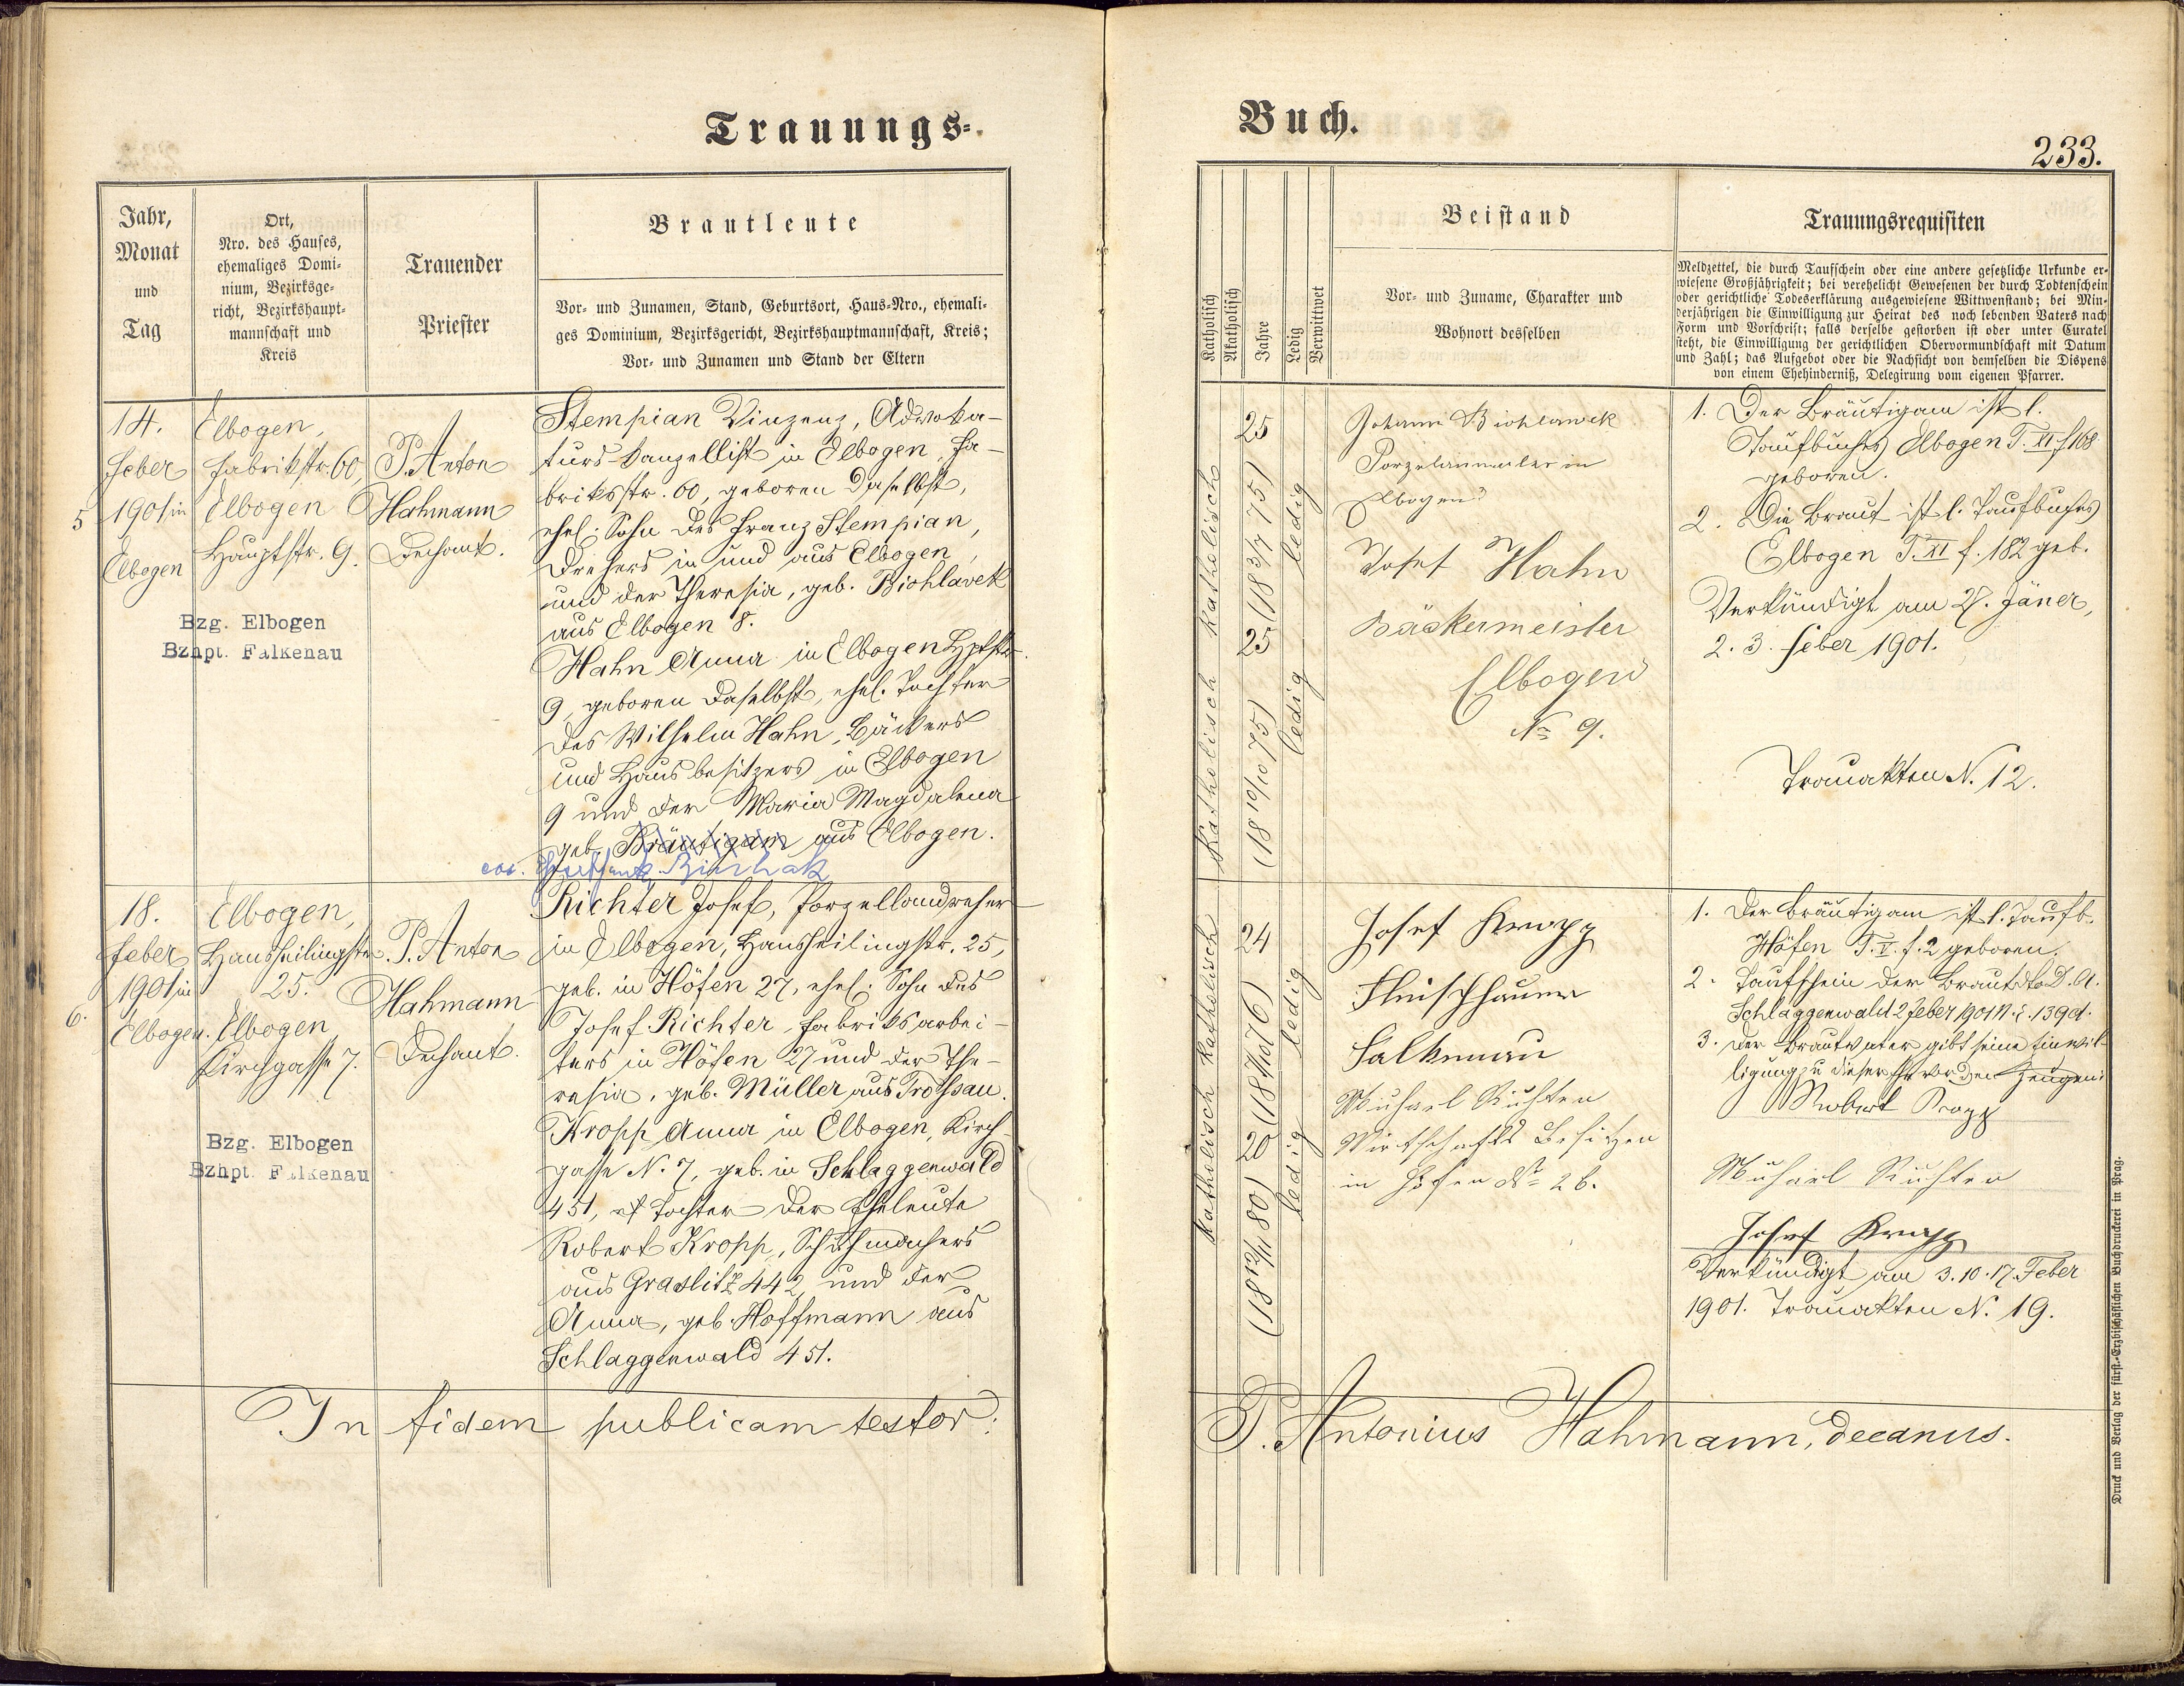 Trauungs-
Jahr,
Monat
und
Tag
Ort,
Nro. des Hauses,
ehemaliges Domi-
nium, Bezirksge-
richt, Bezirkshaupt-
mannschaft und
Kreis
Trauender
Priester
Brautleute
Vor- und Zunamen, Stand, Geburtsort, Haus-Nro., ehemali-
ges Dominium, Bezirksgericht, Bezirkshauptmannschaft, Kreis;
Vor- und Zunamen und Stand der Eltern
5
14.
Feber
1901 in
Elbogen
Elbogen,
Fabrikstr. 60,
Elbogen
Hauptstr. 9.
Bzg. Elbogen
Bzhpt. Falkenau
P. Anton
Hahmann
Dechant.
Stempian Vinzenz, Advoka-
turs-Kanzellist in Elbogen, Fa-
briksstr. 60, geboren daselbst,
ehel. Sohn des Franz Stempian,
Drehers in und aus Elbogen,
und der Theresia, geb. Biohlavek
aus Elbogen 8.
Hahn Anna in Elbogen Hptstr.
9, geboren daselbst, ehel. Tochter
des Wilhelm Hahn, Bäckers
und Hausbesitzers in Elbogen
9 und der Maria Magdalena
geb. Bräutigam aus Elbogen.
6.
18.
Feber
1901 in
Elbogen.
Elbogen,
Hansheilingstr.
25.
Elbogen
Kirchgasse 7.
Bzg. Elbogen
Bzhpt. Falkenau
P. Anton
Hahmann
Dechant.
Richter Josef, Porzellandreher
in Elbogen, Hansheilingstr. 25,
geb. in Höfen 27, ehel. Sohn des
Josef Richter, Fabriksarbei-
ters in Höfen 27 und der The-
resia, geb. Müller aus Trossau.
Kropp Anna in Elbogen, Kirch-
gasse N. 7, geb. in Schlaggenwald
451, Tochter der Eheleute
Robert Kropp, Schuhmachers
aus Graslitz 442 und der
Anna, geb. Hoffmann aus
Schlaggenwald 451.
In fidem publicam testor:
Buch.
233.
Katholisch
Akatholisch
Jahre
Ledig
Verwittwet
Beistand
Vor- und Zuname, Charakter und
Wohnort desselben
Trauungsrequisiten
Meldzettel, die durch Taufschein oder eine andere gesetzliche Urkunde er-
wiesene Großjährigkeit; bei verehelicht Gewesenen der durch Todtenschein
oder gerichtliche Todeserklärung ausgewiesene Wittwenstand; bei Min-
derjährigen die Einwilligung zur Heirat des noch lebenden Vaters nach
Form und Vorschrift; falls derselbe gestorben ist oder unter Curatel
steht, die Einwilligung der gerichtlichen Obervormundschaft mit Datum
und Zahl; das Aufgebot oder die Nachsicht von demselben die Dispens
von einem Ehehinderniß, Delegirung vom eigenen Pfarrer.
katholisch
25
ledig
Katholisch
25
(18 10/10 75)
ledig
Johann Biohlawek
Porzelanmaler in
Elbogen
Josef Hahn
Bäckermeister
Elbogen
No 9.
1. Der Bräutigam ist l.
Taufbuches Elbogen T. XI f 168
geboren.
2. Die Braut ist l. Taufbuches
Elbogen T. XI f. 182 geb.
Verkündigt am 27. Jäner,
2. 3. Feber 1901.
Trauakten N. 12.
katholisch
24
ledig
katholisch
20
(18 12/11 80)
ledig
Josef Kropp
Fleischhauer
Falkenau
Michael Richter
Wirtschafts Besitzer
in Höfen No 26.
1. Der Bräutigam ist l. Taufb.
Höfen T. I. f. 2 geboren.
2. Taufschein der Braut dto D. A.
Schlaggenwald 2 Feber 1901 N. E. 1390.
3. Der Brautvater gibt seine Einwil-
ligung zu dieser Ehe vor den Zeugen:
Robert Kropp
Michael Richter
Josef Kropp
Verkündigt am 3. 10. 17. Feber
1901. Trauakten N. 19.
P. Antonius Hahmann, decanus.
Druck und Verlag der fürst.-Erzbischöflichen Buchdruckerei in Prag.